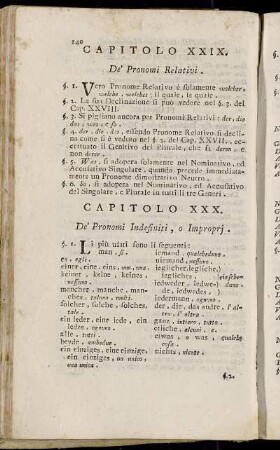 240
CAPITOLO XXIX.
De' Pronomi Relativi.
§. 1. Vero Pronome Relativo è solamente welcher,
welche, welches; il quale, la quale.
§. 2. La sua Declinazione si può vedere nel §. 3. del
Cap. XXVIII.
§. 3. Si pigliano ancora per Pronomi Relativi: der, die
das, was, e so.
§. 4. der, die, das, essendo Pronome Relativo si decli-
na come si è veduto nel §. 2. del Cap. XXVII.
eccettuato il Genitivo del Plurale, che fa deren, e
non derer.
§. 5. Was, si adopera solamente nel Nominativo, ed
Accusativo Singolare, quando precede immediata-
mente un Pronome dimostrativo Neutro.
§. 6. So, si adopera nel Nominativo, ed Accusativo
del Singolare, e Plurale in tutti li tre Generi.
CAPITOLO XXX.
De' Pronomi Indefiniti, o Improprj.
§. 1. Li più usati sono li seguenti:
man, si.
es, egli.
einer, eine, eins,
keiner, keine, keines,
nessuno.
mancher, manche, man-
ches,
solcher, solche, solches,
tale.
ein jeder, eine jede, ein
jedes, ognuno.
alle, tutti
beyde, ambedue.
ein einziges, eine einzige,
ein einziges, un unico,
una unica.
jemand, qualcheduno.
niemand, nessuno.
jeglicher, jegliche,
jegliches,
jedweder,
de, jedwedes,
jedermann, ognuno.
der, die, das andre, l'al-
tro, l'altra.
ganz, intiero, tutto.
etliche, alcuni.
etwas, o was, qualche
cosa.
nichts, niente.
§. 2.